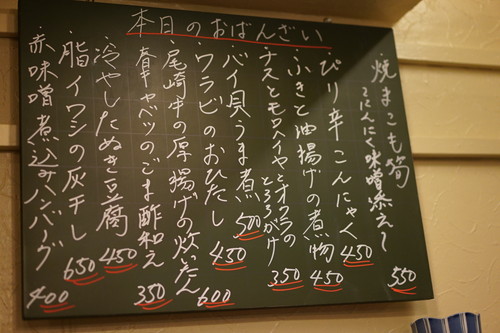 本日のおばんざい
焼まこも筍
〜にんにく味噌添え〜
550
ぴり辛こんにゃく
450
ふきと油揚げの煮物
450
ナスとモロヘイヤとオクラの
とろろがけ
350
・バイ貝うま煮
500
・ワラビのおひたし
450
・尾崎牛の厚揚げの炊いたん
600
・春キャベツのごま酢和え
350
・冷やしたぬき豆腐
450
・脂イワシの灰干し
650
・赤味噌煮込みハンバーグ
400